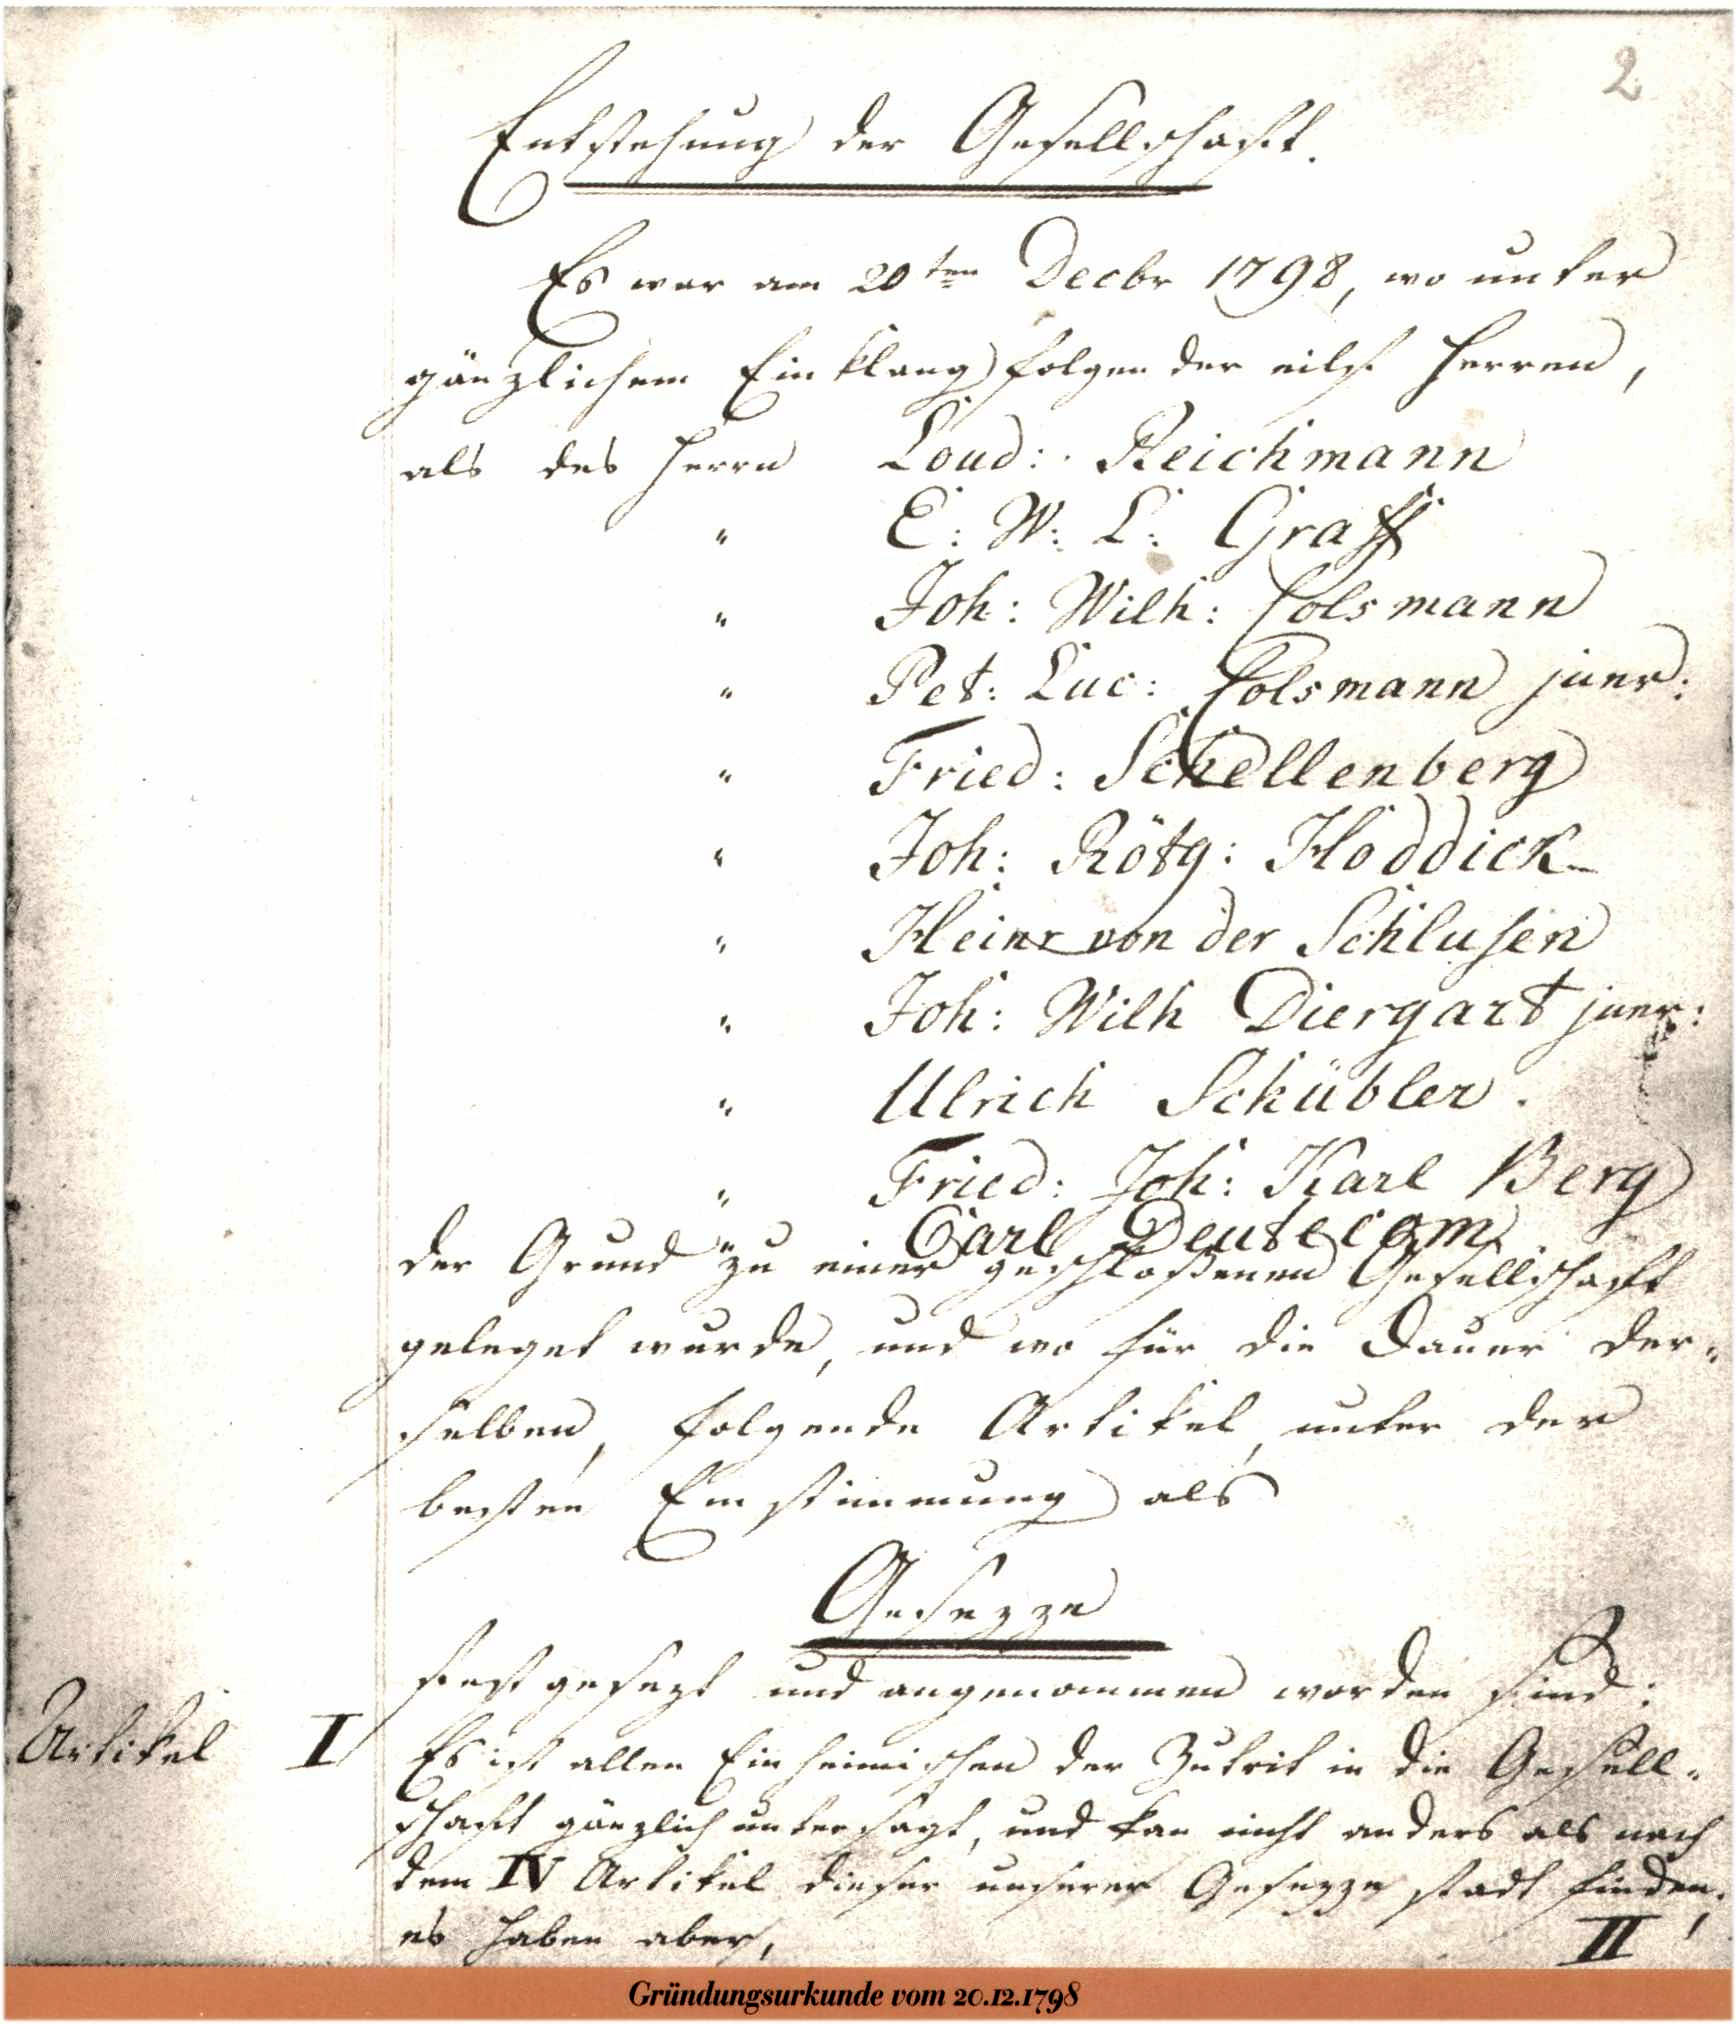 2
Entstehung der Gesellschaft.
Es war am 20ten Decbr 1798, wo unter
gänzlichem Einklang folgender eilf Herren,
als des Herrn Loud: Reichmann
" E: W: L: Graff
" Joh: Wilh: Colsmann
" Pet: Luc: Colsmann juner:
" Fried: Schellenberg
" Joh: Rötg: Hoddick
" Heinr von der Schlusen
" Joh: Wilh Diergart juner:
" Ulrich Schübler.
" Fried: Joh: Karl Berg
" Carl Deutecom
der Grund zu einer geschloßenen Gesellschaft
geleget wurde, und wo für die Dauer der=
selben, folgende Artikel, unter der
besten Einstimmung als
Gesezze
festgesezt und angenommen worden sind:
Artikel I Es ist allen Einheimischen der Zutrit in die Gesell=
schaft gänzlich untersagt, und kan nicht anders als nach
dem IV Artikel dieser unserer Gesezze stadt finden,
es haben aber,
II
Gründungsurkunde vom 20.12.1798